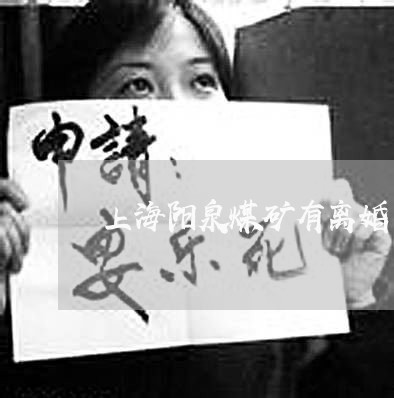 申請：
上海阳泉煤矿有离婚
安乐死